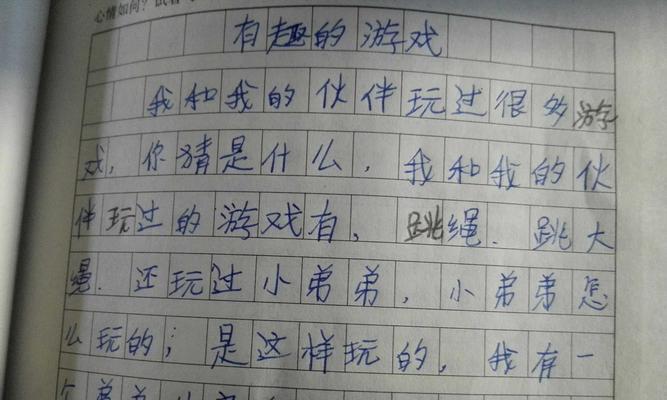 心情如何？试着
有趣的游戏
我和我的伙伴玩过很多游
戏，你猜是什么，我和我的伙
伴玩过的游戏有、跳绳、跳大
绳、还玩过小弟弟，小弟弟怎
么玩的；是这样玩的，我有一
个弟弟